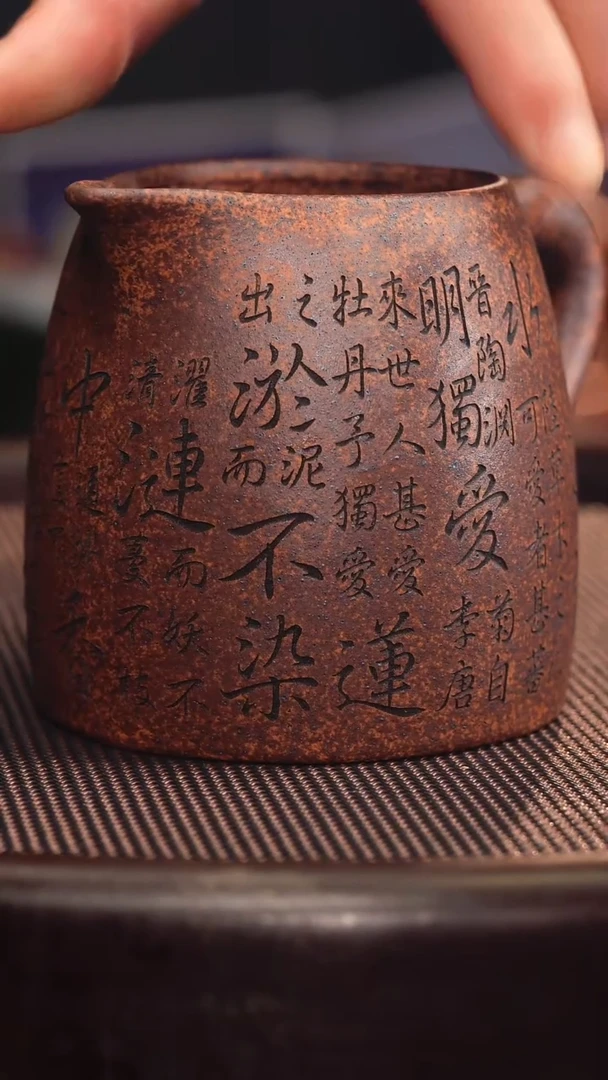 水陸草木之
可愛者甚蕃
晉陶淵
明獨愛
菊自
李唐
來世人甚愛
牡丹予獨愛
蓮
之出淤泥而
不染
濯清漣
而妖不
蔓不枝
中通